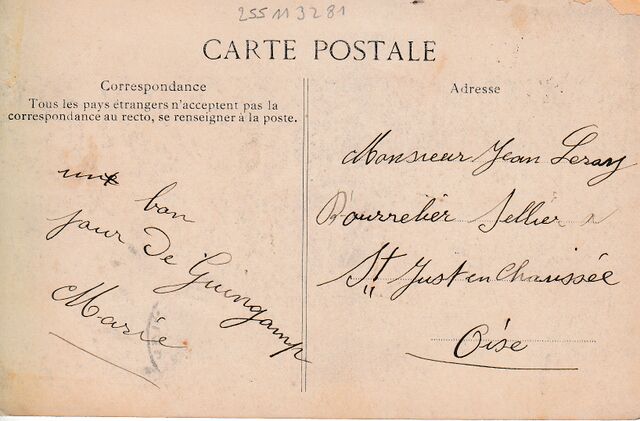 255 113281
CARTE POSTALE
Correspondance
Tous les pays étrangers n'acceptent pas la
correspondance au recto, se renseigner à la poste.
un bon
jour De Guingamp
Marie
Adresse
Monsieur Jean Leroy
Bourrelier Sellier
St Just en Chaussée
Oise